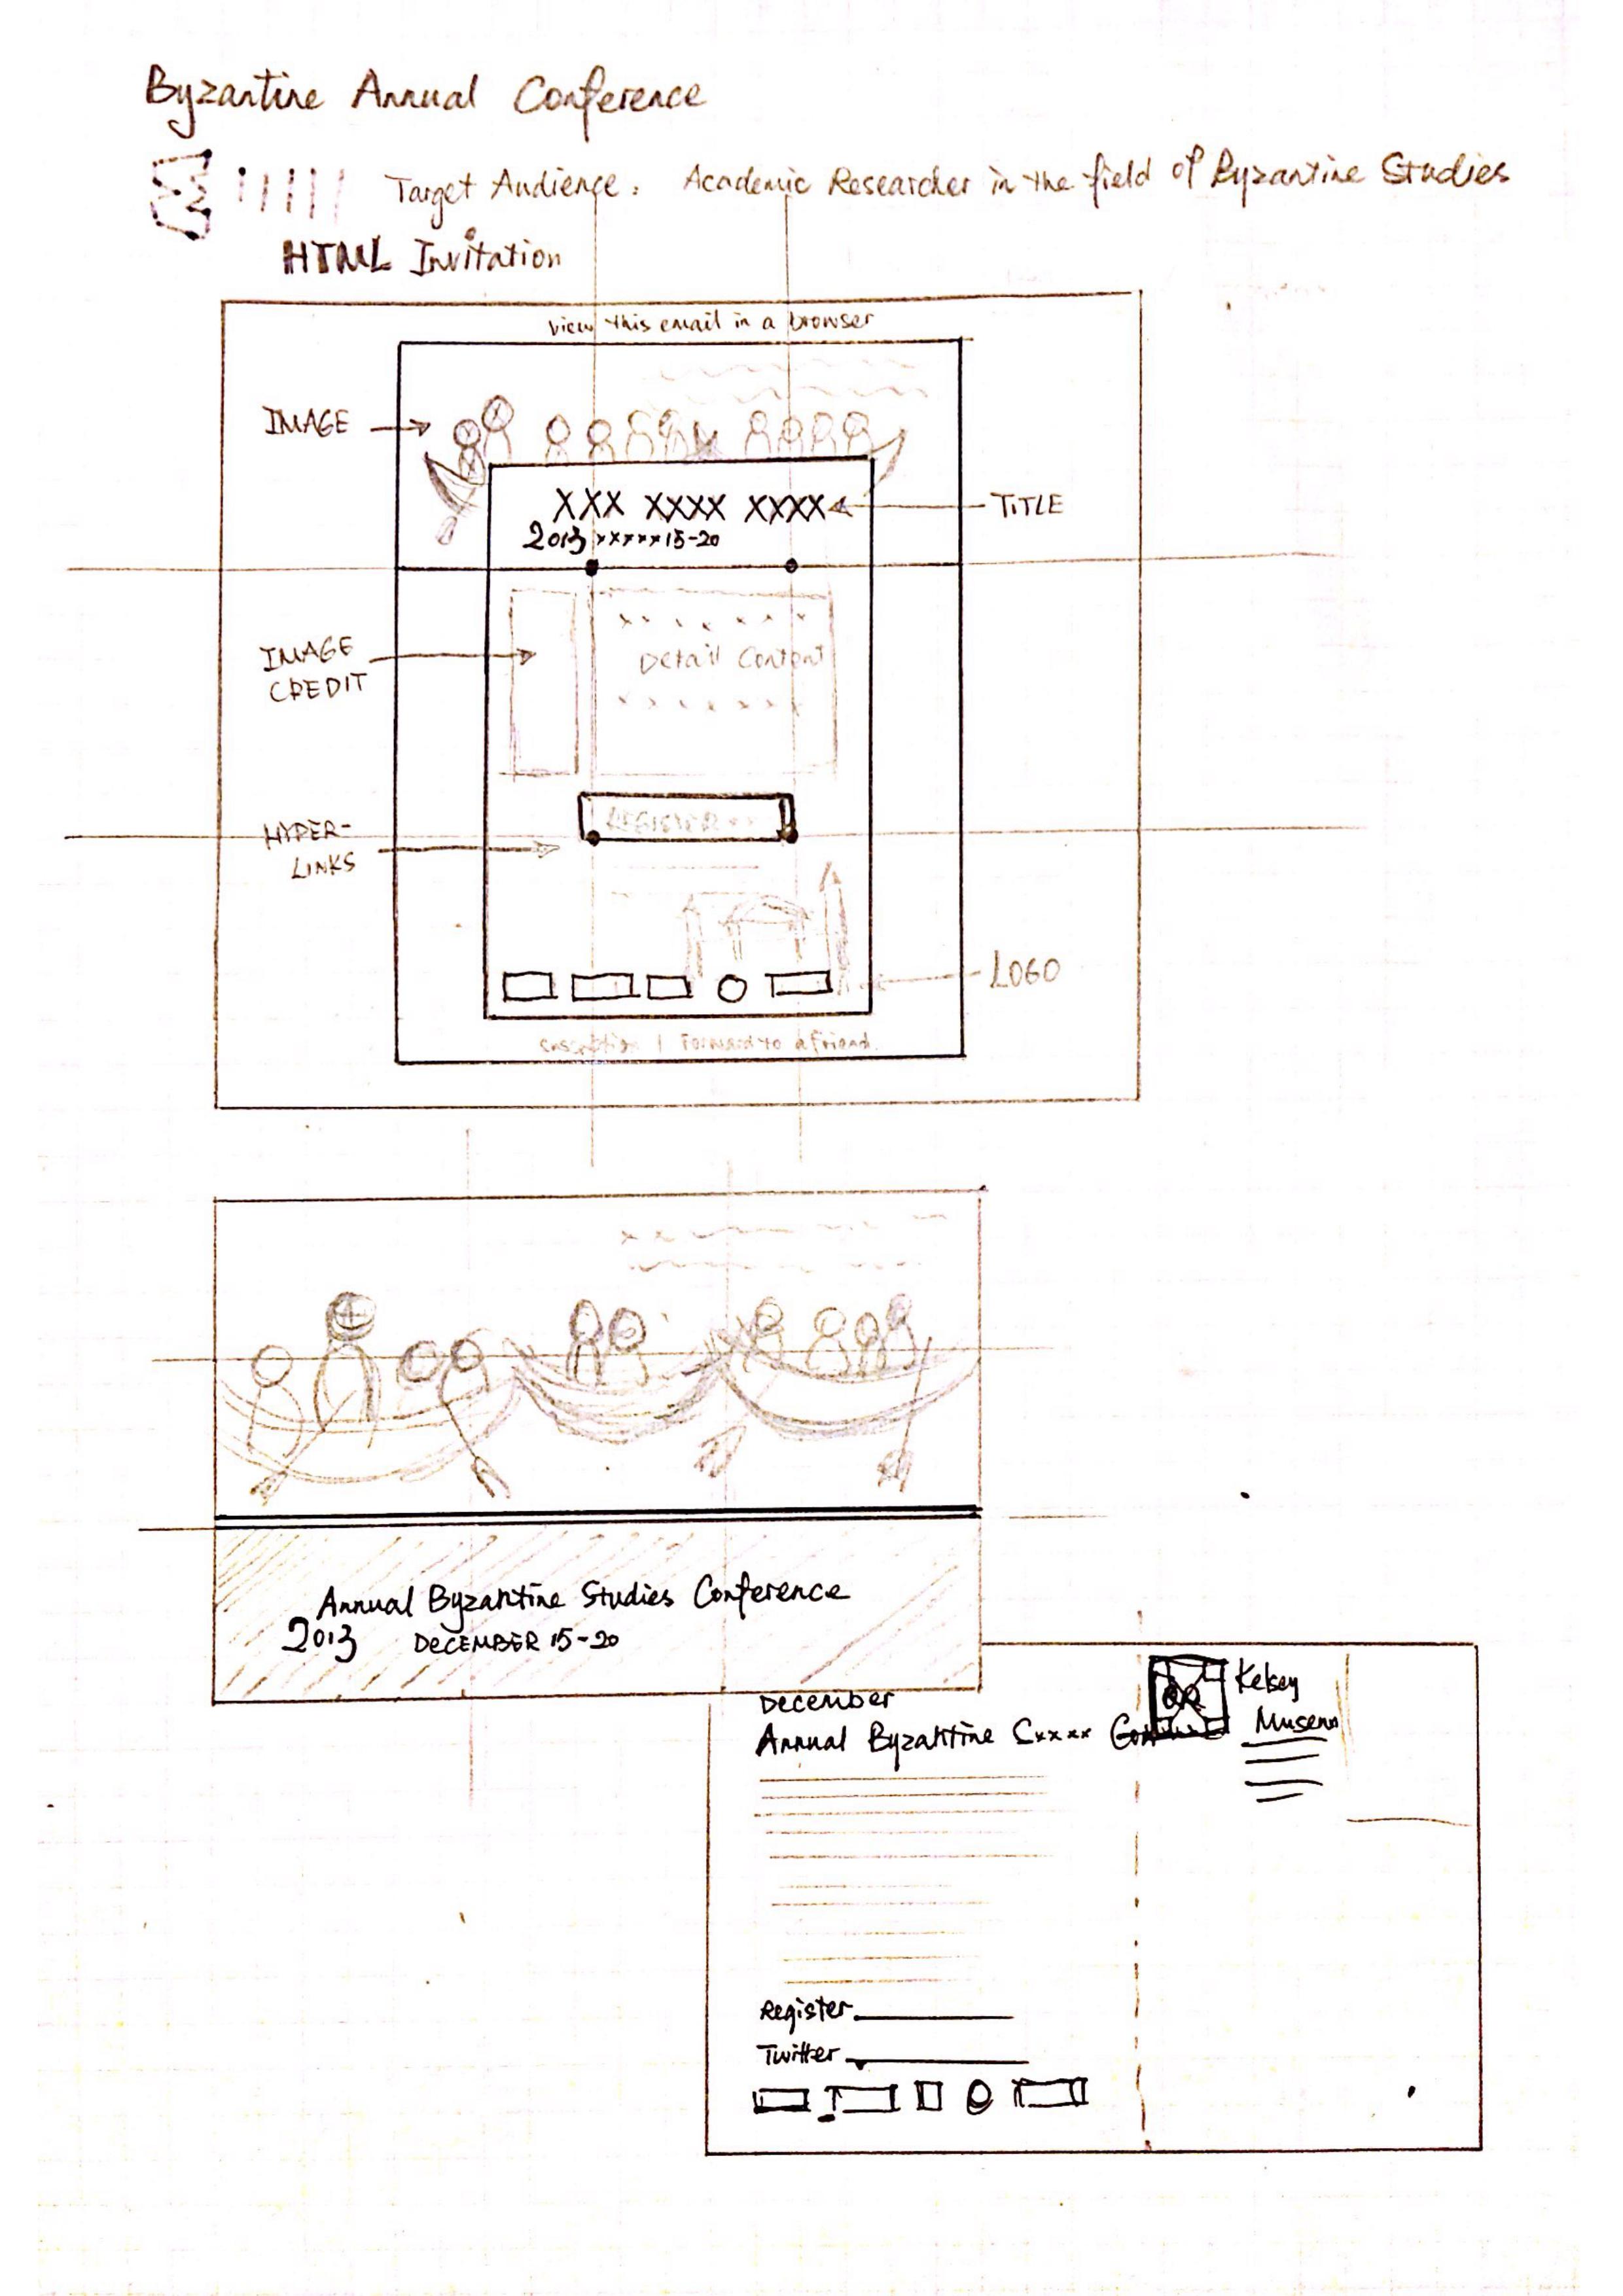 Byzantine Annual Conference
Target Audience: Academic Researcher in the field of Byzantine Studies
HTML Invitation
view this email in a browser
IMAGE
XXX XXXX XXXX
TITLE
2013 xxxxx 15-20
IMAGE
CREDIT
x x x x x x x
Detail Content
x x x x x x x
REGISTER
HYPER-
LINKS
LOGO
| Forward to a friend
Annual Byzantine Studies Conference
2013 DECEMBER 15-20
December
Annual Byzantine Sxxxx
Kelsey
Museum
Register
Twitter